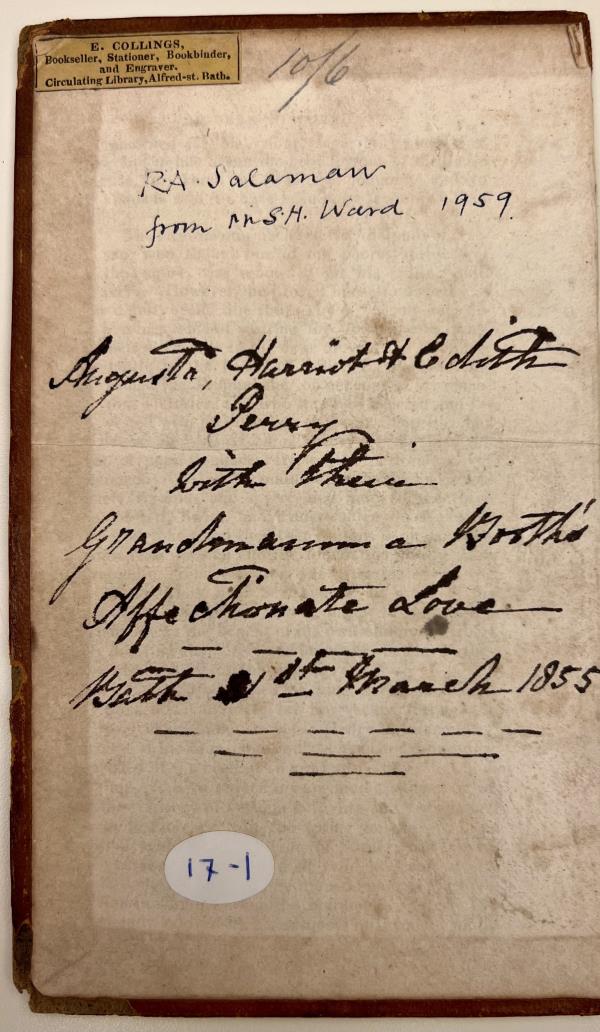 E. COLLINGS,
Bookseller, Stationer, Bookbinder,
and Engraver.
Circulating Library, Alfred-st. Bath.
10/6
R.A. Salaman
from Mr S.H. Ward 1959.
Augusta, Harriot & Edith
Perry
With Their
Grandmamma Booth's
Affectionate Love
Bath 1st March 1855
17-1